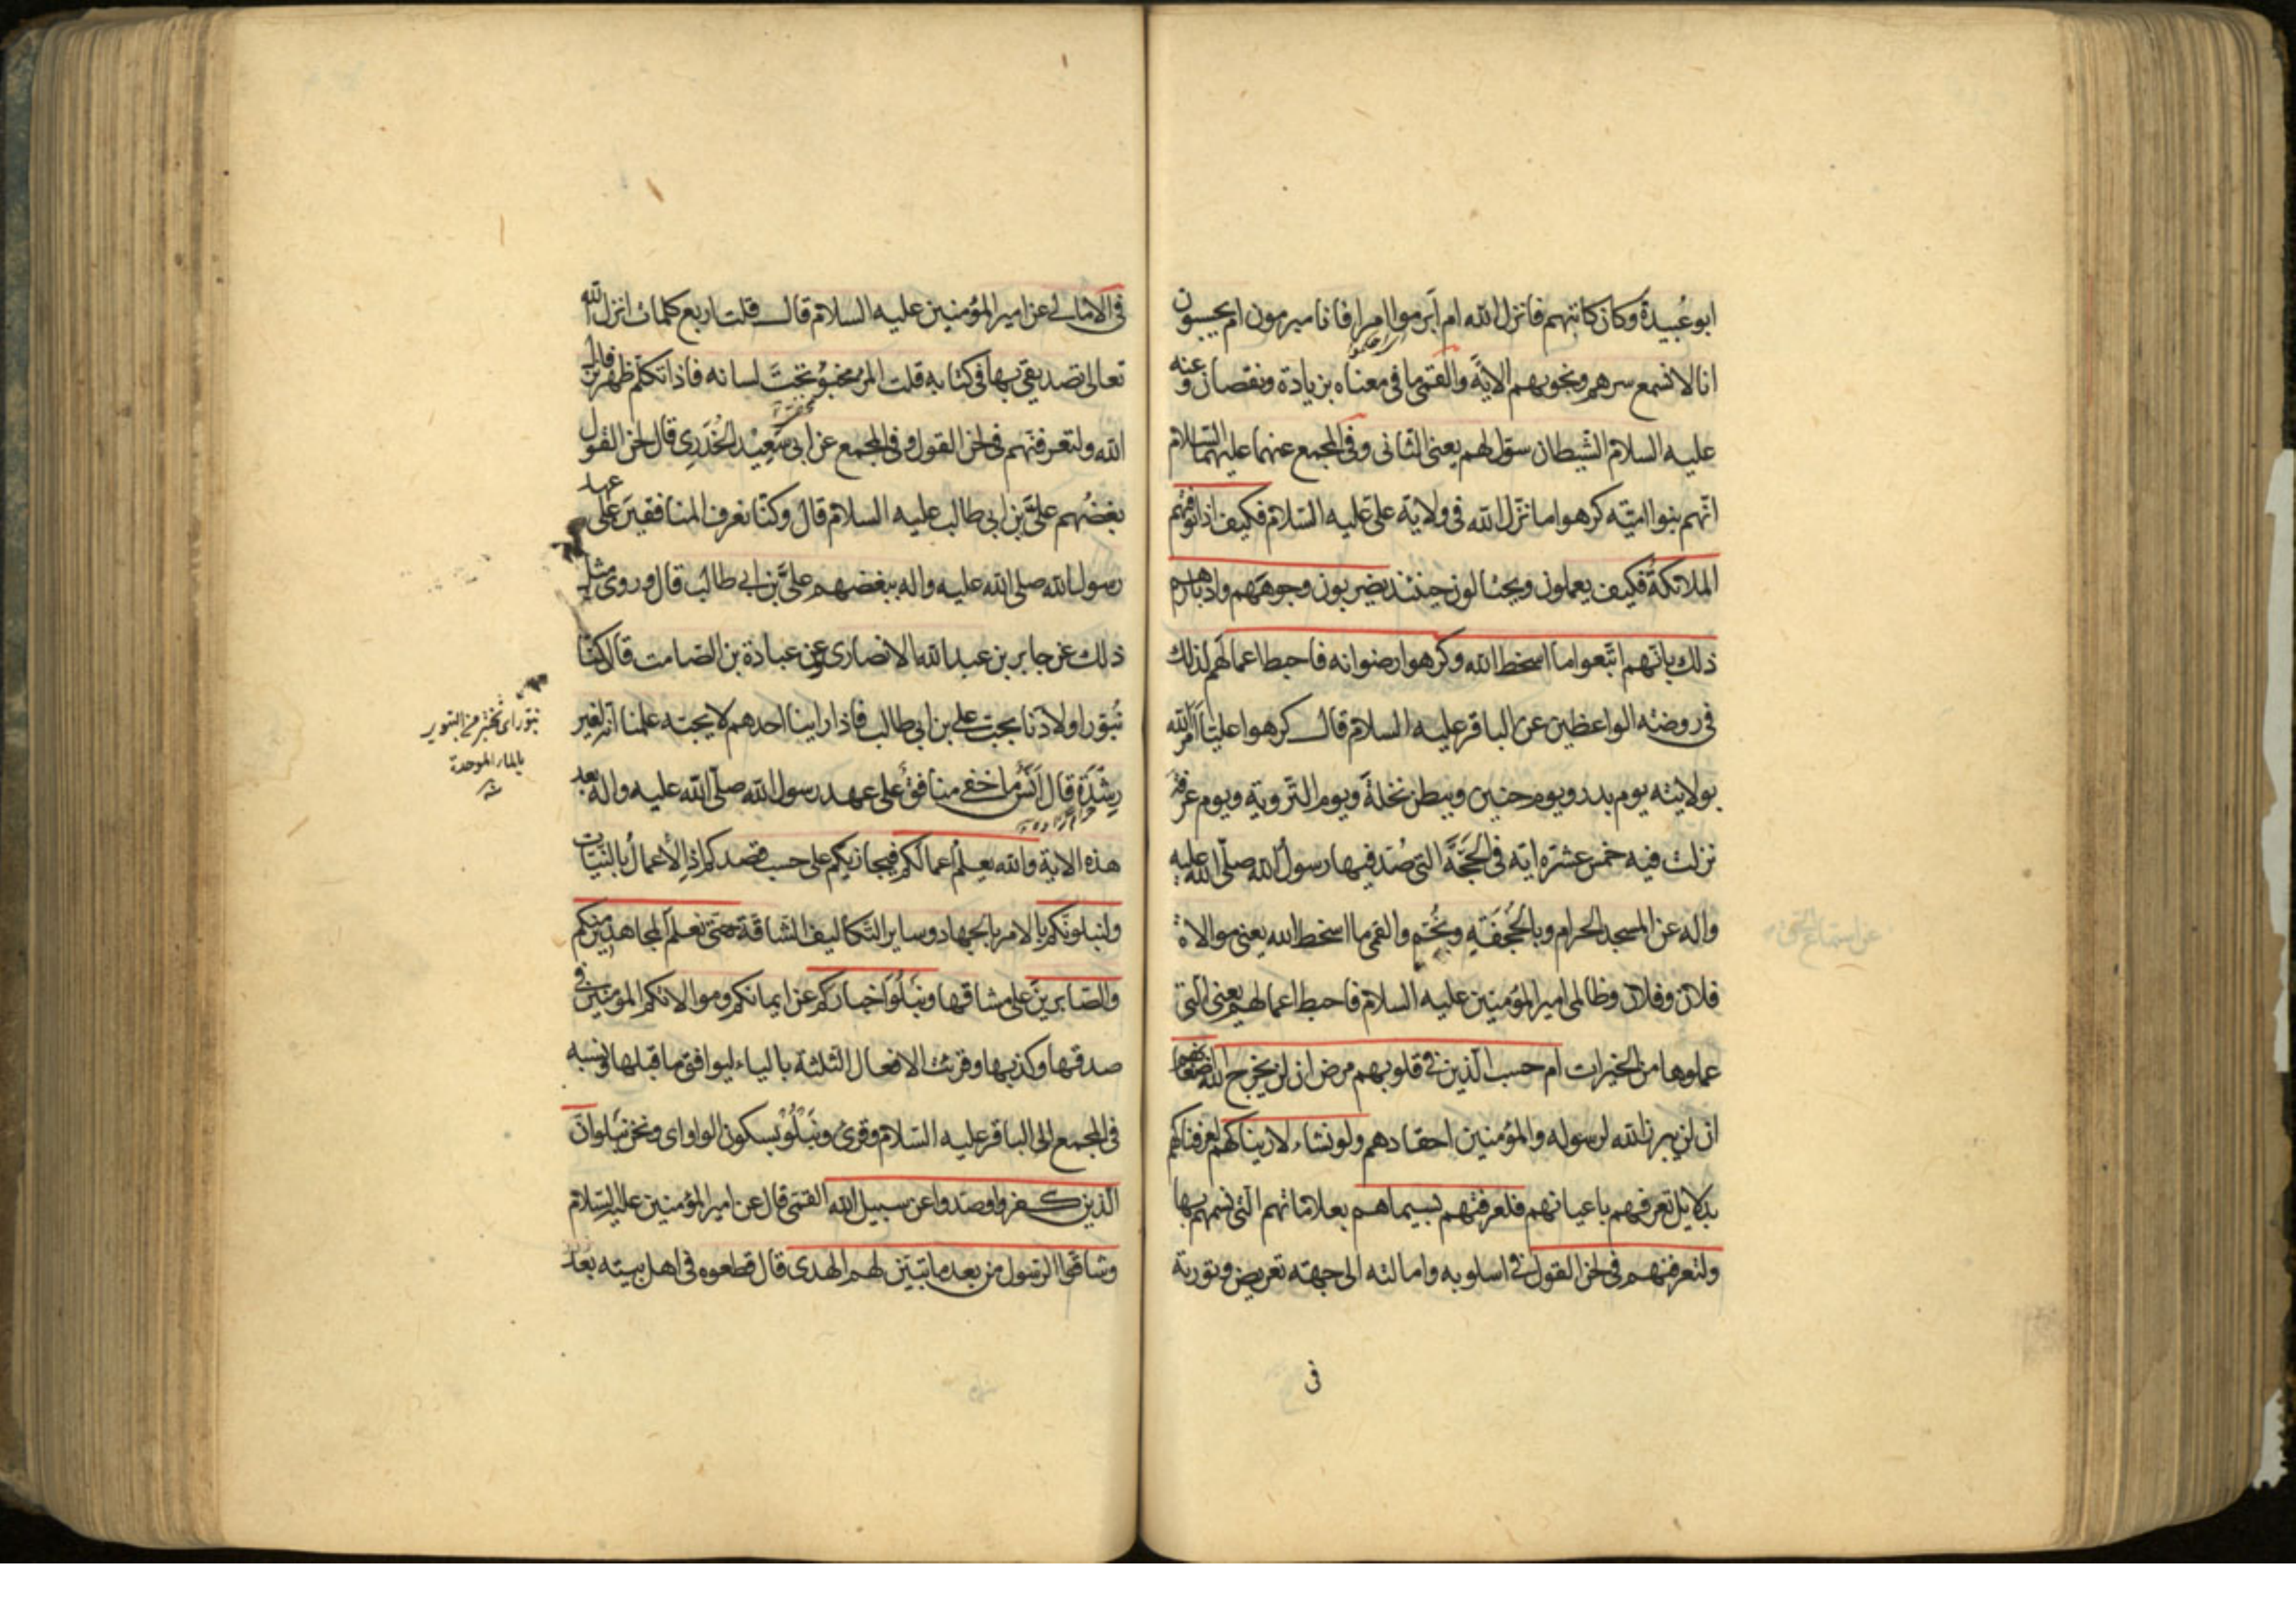 ابو عبيدة وكان كاتبهم فانزل الله ام ابرموا امرا فانا مبرمون ام يحسبون
انا لا نسمع سرهم ونجويهم الاية والقمى ما فى معناه بزيادة ونقصان وعنه
عليه السلام الشيطان سول لهم يعنى الثانى وفى المجمع عنهما عليهما السلام
انهم بنوا امية كرهوا ما نزل الله فى ولاية على عليه السلام فكيف اذا توفتهم
الملائكة فكيف يعملون ويحتالون حينئذ يضربون وجوههم وادبارهم
ذلك بانهم اتبعوا ما اسخط الله وكرهوا رضوانه فاحبط اعمالهم لذلك
فى روضة الواعظين عن الباقر عليه السلام قال كرهوا عليا امر الله
بولايته يوم بدر ويوم حنين وببطن نخلة ويوم التروية ويوم عرفة
نزلت فيه خمس عشرة اية فى الحجة التى صد فيها رسول الله صلى الله عليه
واله عن المسجد الحرام وبالجحفة وبخم والقمى ما اسخط الله يعنى موالاة
فلان وفلان وظالمى امير المؤمنين عليه السلام فاحبط اعمالهم يعنى التى
عملوها من الخيرات ام حسب الذين فى قلوبهم مرض ان لن يخرج الله اضغانهم
ان لن يبرز الله لرسوله والمؤمنين احقادهم ولو نشاء لاريناكهم لعرفناكهم
بدلايل تعرفهم باعيانهم فلعرفتهم بسيماهم بعلاماتهم التى نسمهم بها
ولتعرفنهم فى لحن القول فى اسلوبه وامالته الى جهة تعريض وتورية
فى
فى الامالى عن امير المؤمنين عليه السلام قال قلت اربع كلمات انزل الله
تعالى تصديقى بها فى كتابه قلت المرء مخبو تحت لسانه فاذا تكلم ظهر فانزل
الله ولتعرفنهم فى لحن القول وفى المجمع عن ابى سعيد الخدرى قال لحن القول
بغضهم على بن ابى طالب عليه السلام قال وكنا نعرف المنافقين على عهد
رسول الله صلى الله عليه واله ببغضهم على بن ابى طالب قال وروى مثل
ذلك عن جابر بن عبد الله الانصارى وعن عبادة بن الصامت قال كنا
نبور اولادنا بحب على بن ابى طالب فاذا راينا احدهم لا يحبه علمنا انه لغير
رشدة قال انس ما خفى منافق على عهد رسول الله صلى الله عليه واله بعد
هذه الاية والله يعلم اعمالكم فيجازيكم على حسب قصدكم اذ الاعمال بالنيات
ولنبلونكم بالامر بالجهاد وساير التكاليف الشاقة حتى نعلم المجاهدين منكم
والصابرين على مشاقها ونبلوا اخباركم عن ايمانكم وموالاتكم المؤمنين فى
صدقها وكذبها وقرئت الافعال الثلثة بالياء ليوافق ما قبلها ونسبه
فى المجمع الى الباقر عليه السلام وقرئ ونبلو بسكون الواو اى ونحن نبلو ان
الذين كفروا وصدوا عن سبيل الله القمى قال عن امير المؤمنين عليه السلام
وشاقوا الرسول من بعد ما تبين لهم الهدى قال قطعوه فى اهل بيته بعد
نبور اى نختبر من التبوير
بالباء الموحدة